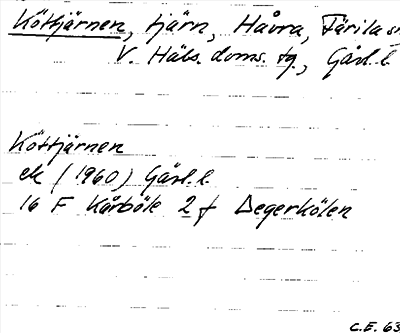 Köttjärnen, tjärn, Håvra, Färila sn
V. Häls. doms. tg., Gävl. l.
Köttjärnen
ek (1960) Gävl. l.
16 F Kårböle 2 f Degerkölen
C.E. 63